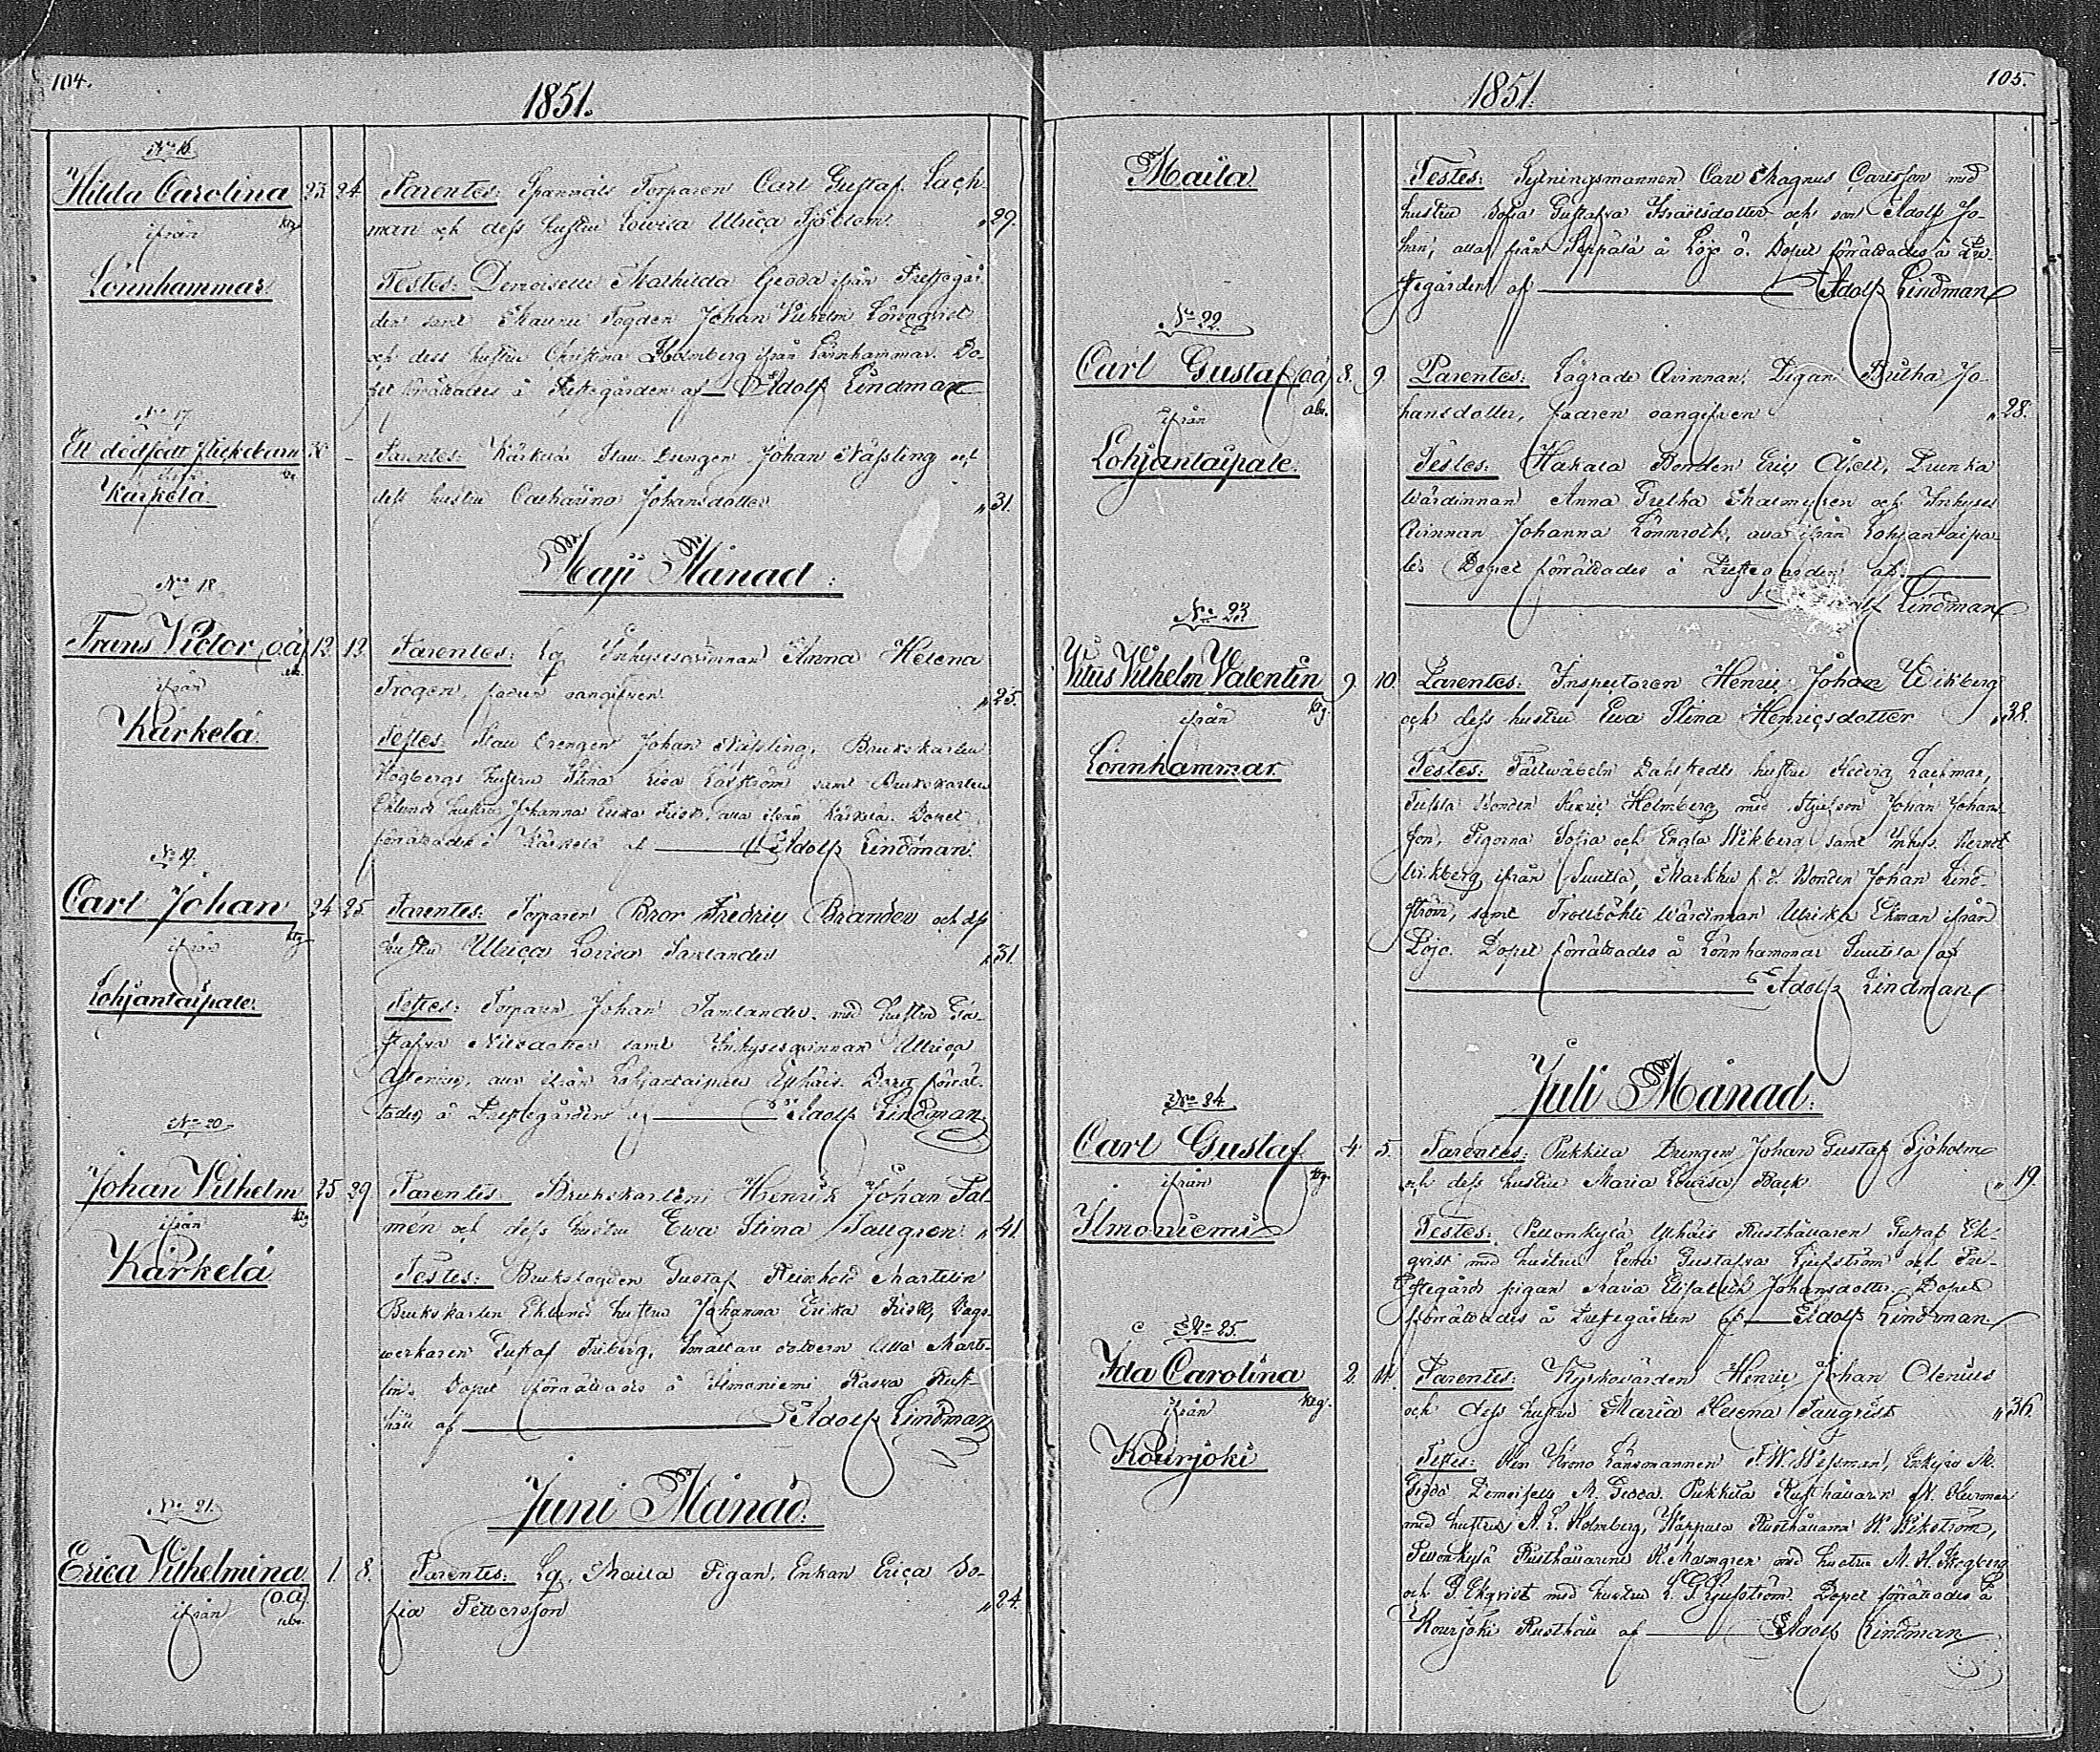 104.
1851.
No 16.
Hilda Carolina 23. 24.
ifrån
Lönnhammar
Parentes: Spannmåls Torparen Carl Gustaf Lach-
man och dess hustru Lovisa Ulrica Sjöblom. "29.
Testes: Demoiselle Mathilda Geoda ifrån Prestegår-
den samt Fogden Johan Vilhelm Lönnqvist
och dess hustru Christina Holmberg ifrån Lönnhammar. Do-
pet förrättades å Prestegården af Adolf Lindman
No 17
Ett dödfödt flickebarn 30 -
ifrån
Kärkelä.
Parentes: Kärkelä Drängen Johan Nässling och
dess hustru Catharina Johansdotter "31.
Maji Månad:
No 18.
Frans Victor (oä) 12. 13.
ifrån
Kärkelä.
Parentes: Lg Inhysesqvinnan Anna Helena
Trogen, fadren oangifven. "25.
Testes: Drengen Johan Nässling, Brukskarlen
Högbergs hustru Stina Lisa samt Brukskarlen
Eklunds hustru Johanna Erika Frisk, alla ifrån Kärkelä. Dopet
förrättades i Kärkelä af Adolf Lindman.
No 19.
Carl Johan 24 25.
ifrån
Lohjantaipale.
Parentes: Torparen Bror Fredric Brander och dess
hustru Ulrica Lovisa "31.
Testes: Torparen Johan med hustru Gu-
stafva Nilsdotter samt Inhysesqvinnan Ulrica
alla ifrån Lohjantaipale Dopet förrät-
tades å Prestegården af Adolf Lindman
No 20.
Johan Vilhelm 25 29
ifrån
Kärkelä
Parentes Brukskarlen Henrik Johan Sal-
mén och dess hustru Ewa Stina Sallgren. "41.
Testes: Bruksfogden Gustaf Reinhold Martelin
Brukskarlen Eklunds hustru Johanna Erika Frisk,
Gustaf Friberg, Martе-
lin. Dopet förrättades å Ilmoniemi Rust-
håll af Adolf Lindman
Juni Månad.
No 21.
Erica Vilhelmina 1. 8.
(oä)
ifrån
Parentes: Lg. Maila Pigan, Enkan Erica So-
fia Pettersson "24.
105.
1851.
Maila
Testes: Sytningsmannen Carl Magnus Carlsson med
hustru Sofia Gustafva Israelsdotter och son Adolf Jo-
han, alla från Seppälä å Lojo ö. Dopet förrättades å Pre-
stegården af Adolf Lindman
No 22.
Carl Gustaf (oä) 8. 9
ifrån
Lohjantaipale.
Parentes: Lägrade Qvinnan, Pigan Britha Jo-
hansdotter, fadren oangifven "28.
Testes: Hakala Bonden Eric Axell,
Wärdinnan Anna Gretha och Inhyses
Qvinnan Johanna Lönnroth, alla ifrån Lohjantaipa-
le. Dopet förrättades å Prestegården af
Adolf Lindman
No 23.
Vitus Vilhelm Valentin 9. 10.
ifrån
Lönnhammar.
Parentes: Inspectoren Henric Johan Wikberg
och dess hustru Ewa Stina Henricsdotter "38.
Testes: Fältwäbeln Dahlstedts hustru Hedvig Lachman,
Bonden Henric Holmberg med styfson Johan Johans-
son, Pigorna Sofia och Engla Wikberg samt Inhys.
Wikberg ifrån Suitila, Markku f. d. Bonden Johan Lind-
ström, samt Trollböhle Wärdinnan Ulrika Ekman ifrån
Lojo. Dopet förrättades å Lönnhammar Suitila af
Adolf Lindman
Juli Månad.
No 24.
Carl Gustaf 4. 5.
ifrån
Ilmoniemi
Parentes: Pukkila Drengen Johan Gustaf Sjöholm
och dess hustru Maria Lovisa Back "19.
Testes: Pellonkylä Rusthållaren Gustaf Ek-
qvist med hustru Lena Gustafva Ljufström och Pre-
stegårds pigan Maria Elisabeth Johansdotter. Dopet
förrättades å Prestegården af Adolf Lindman
No 25.
Ida Carolina 2. 11.
ifrån
Kourjoki
Parentes: Kyrkovärden Henric Johan Olenius
och dess hustru Maria Helena Tallqvist "36.
Testes: Herr Krono Länsmannen F. W. Nyssman, Enkefru M.
Geoda Demoiselle M. Geoda. Pukkila Rusthållaren
med hustru A. L. Holmberg, Wappula Rusthållaren W. Wikström,
Pellonkylä Rusthållarene K. Malmgren med hustru M. H. Högberg
och G. Ekqvist med hustru L. G. Ljufström. Dopet förrättades å
Kourjoki Rusthåll af Adolf Lindman